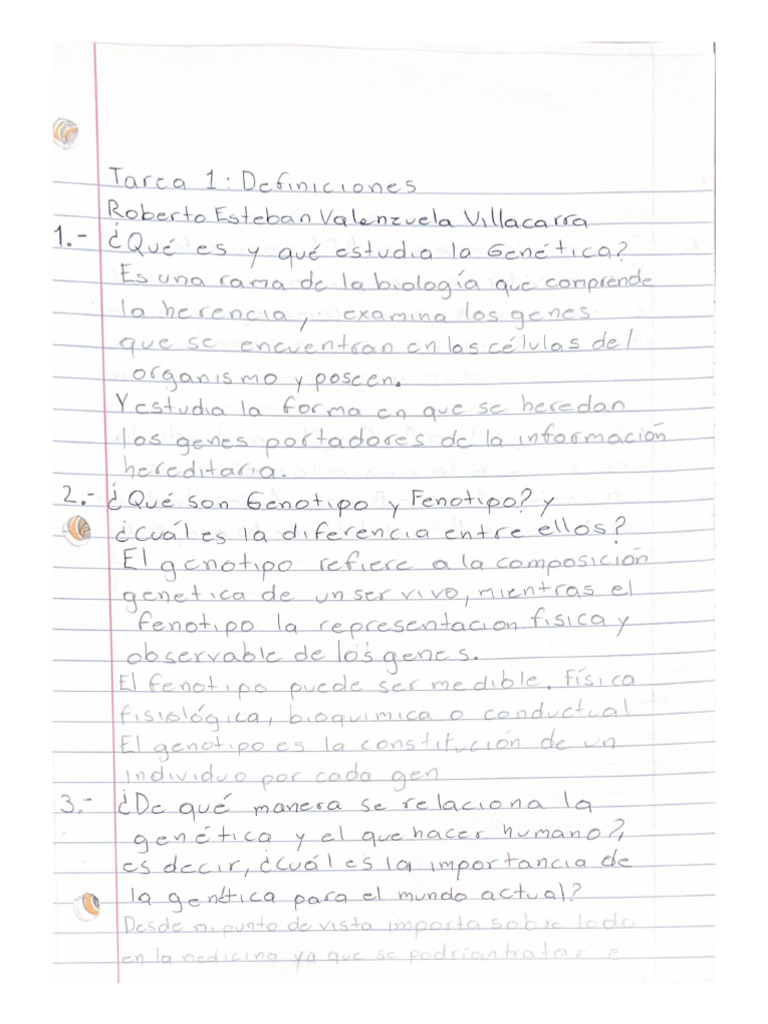 Tarea 1: Definiciones
Roberto Esteban Valenzuela Villacarra
1.- ¿Qué es y qué estudia la Genética?
Es una rama de la biología que comprende
la herencia, examina los genes
que se encuentran en las células del
organismo y poseen.
Y estudia la forma en que se heredan
los genes portadores de la información
hereditaria.
2.- ¿Qué son Genotipo y Fenotipo? y
¿Cuál es la diferencia entre ellos?
El genotipo refiere a la composición
genetica de un ser vivo, mientras el
fenotipo la representacion fisica y
observable de los genes.
El fenotipo puede ser medible. física
fisiológica, bioquimica o conductual
El genotipo es la constitución de un
individuo por cada gen
3.- ¿De qué manera se relaciona la
genética y el que hacer humano?,
es decir, ¿Cuál es la importancia de
la genética para el mundo actual?
Desde mi punto de vista importa sobre todo
en la medicina ya que se podrían tratar e